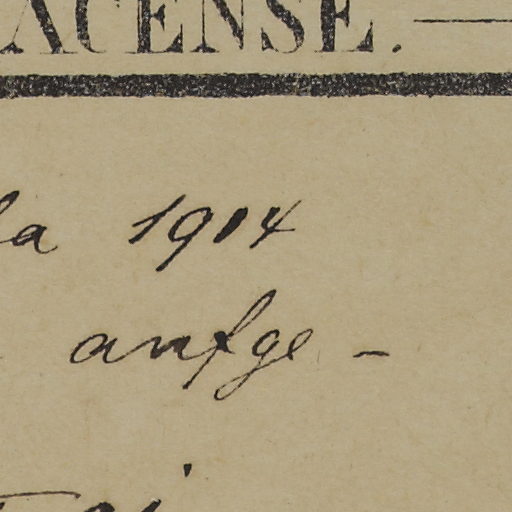 ACENSE.
la 1904
aufge-